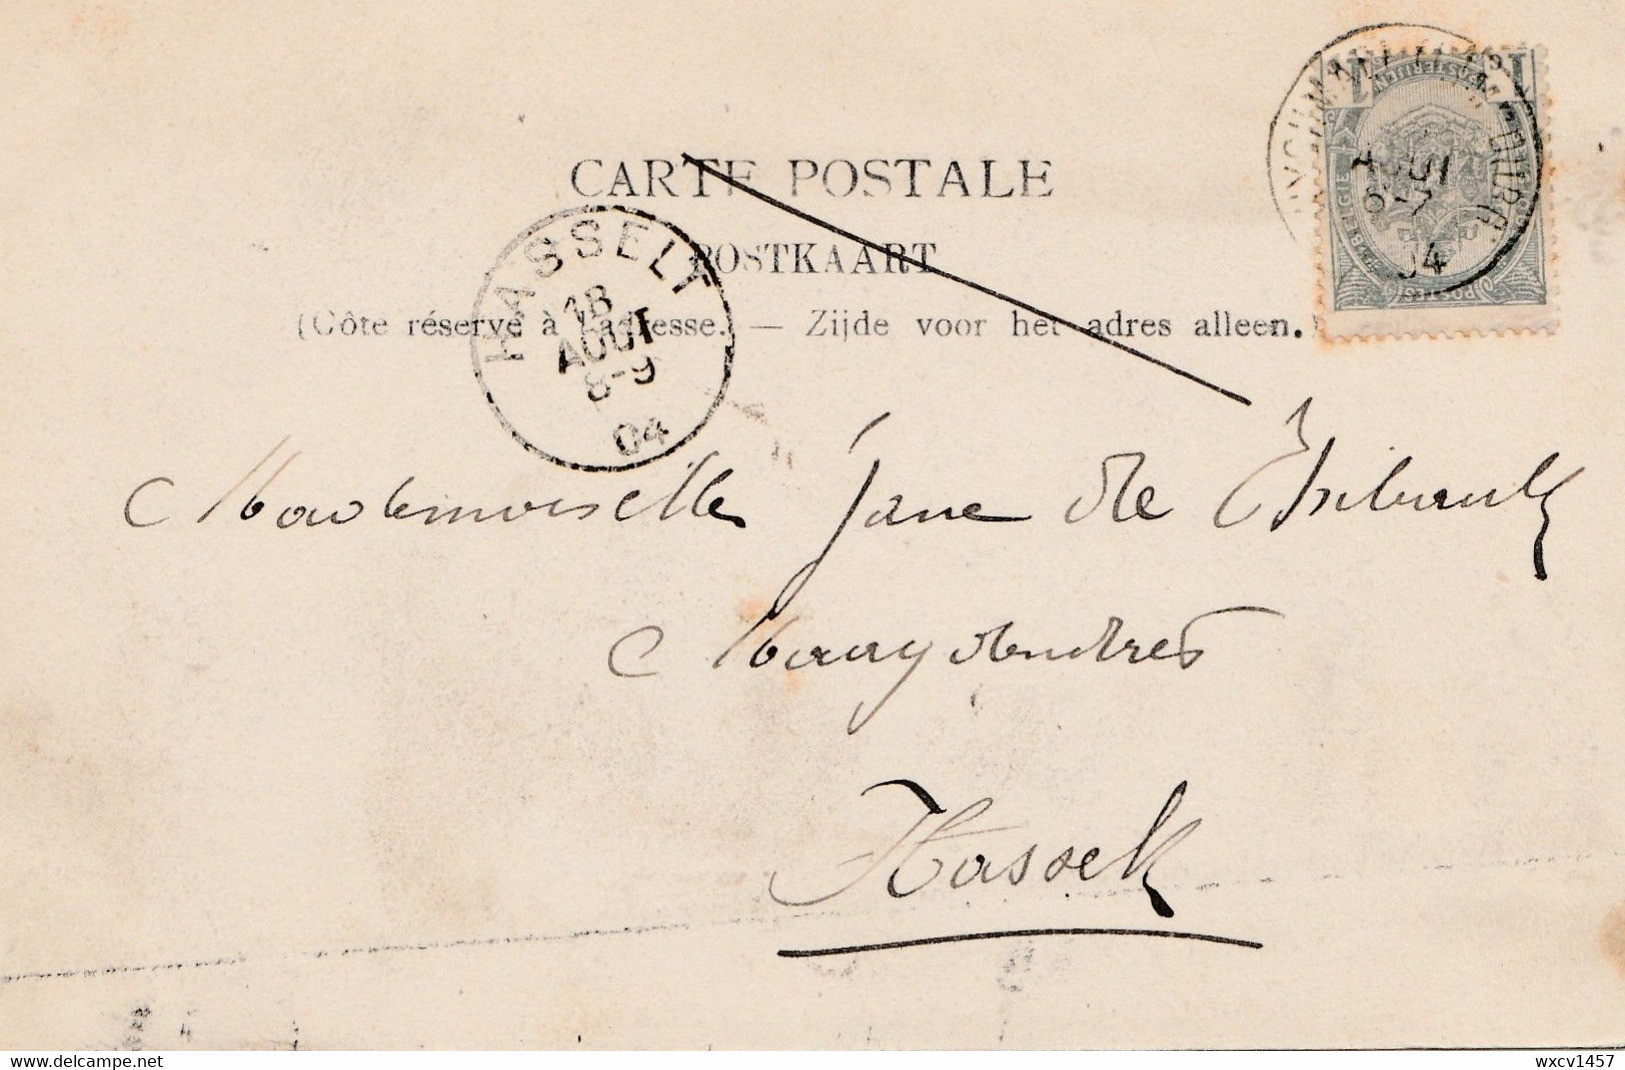 CARTE POSTALE
POSTKAART
(Côte réservé à l'adresse. — Zijde voor het adres alleen.
HASSELT
18
AOUT
8-9
04
AOUT
6-7
04
BELGIE
Mademoiselle Jane de Thibault
Hasselt
www.delcampe.net
wxcv1457